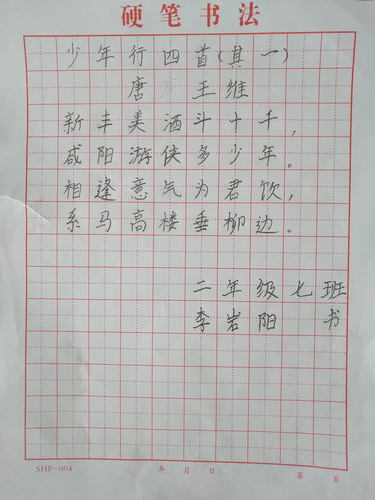 硬笔书法
少年行四首(其一)
唐 王维
新丰美酒斗十千,
咸阳游侠多少年。
相逢意气为君饮,
系马高楼垂柳边。
二年级七班
李岩阳 书
SHF-004 年 月 日 第 页